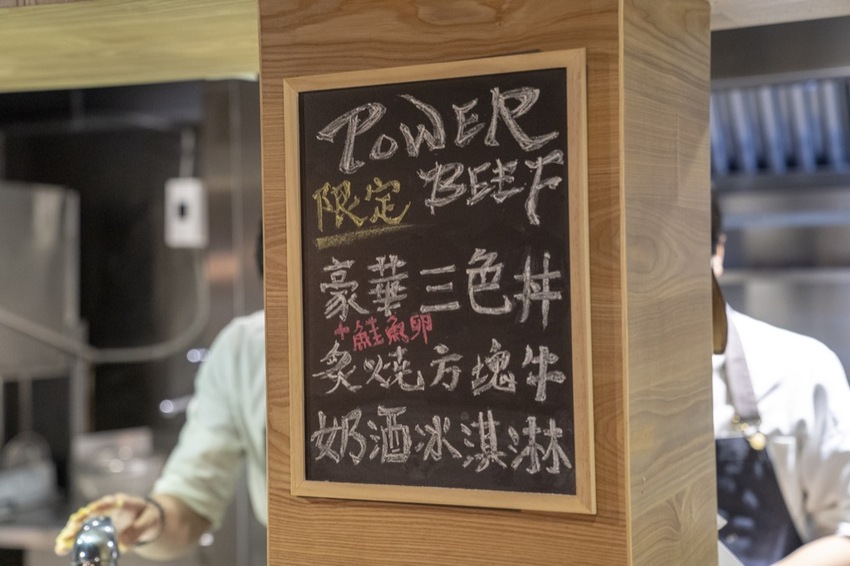 POWER
BEEF
限定
豪華三色丼
+鮭魚卵
炙燒方塊牛
奶酒冰淇淋